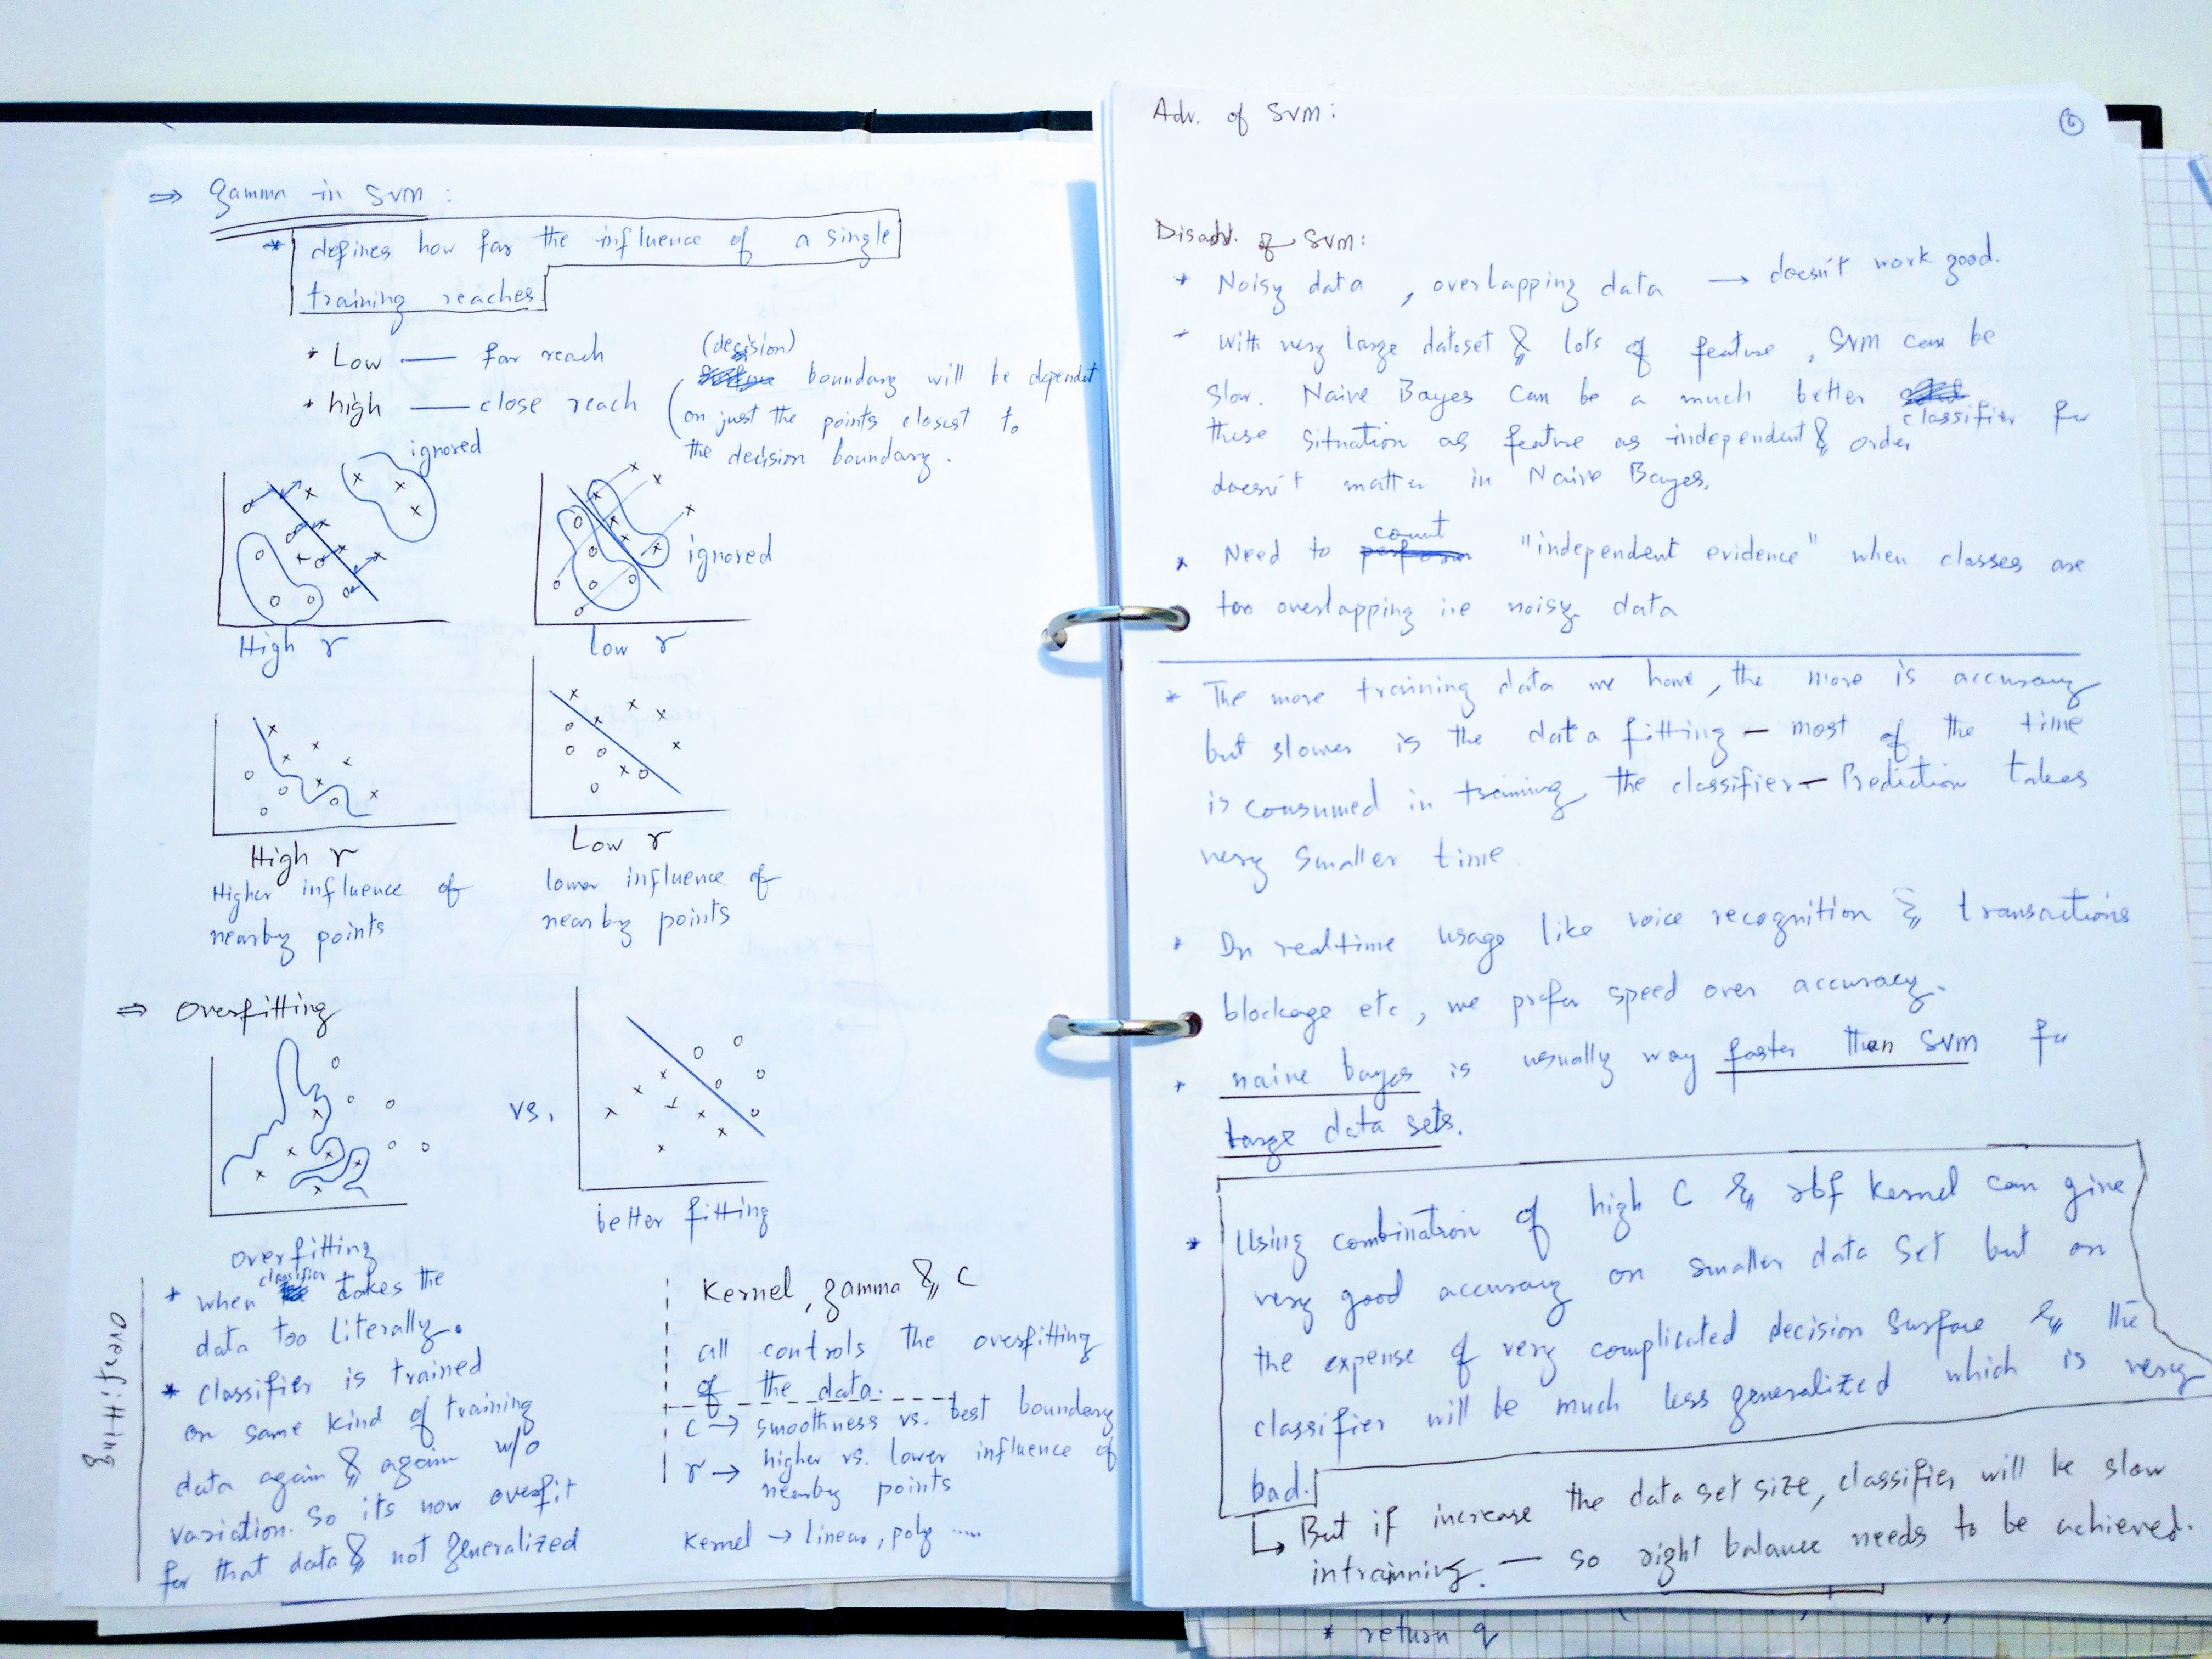 ⇒ Gamma in SVM :
* defines how far the influence of a single
training reaches.
* Low — far reach
* high — close reach
(decision)
boundary will be dependent
on just the points closest to
the decision boundary.
ignored
ignored
High r
Low r
High r
Higher influence of
nearby points
Low r
lower influence of
nearby points
⇒ Overfitting
vs.
overfitting
better fitting
overfitting
* when classifier takes the
data too literally.
* classifier is trained
on same kind of training
data again & again w/o
variation. So its now overfit
for that data & not generalized
Kernel, gamma & C
all controls the overfitting
of the data.
C → smoothness vs. best boundary
r → higher vs. lower influence of
nearby points
Kernel → linear, poly .....
Adv. of SVM :
6
Disadv. of SVM :
* Noisy data , overlapping data → doesn't work good.
* With very large dataset & lots of feature , SVM can be
slow. Naive Bayes can be a much better classifier for
these situation as feature as independent & order
doesn't matter in Naive Bayes.
* Need to count "independent evidence" when classes are
too overlapping i.e noisy data
* The more training data we have, the more is accuracy
but slower is the data fitting — most of the time
is consumed in training the classifier — Prediction takes
very smaller time.
* In realtime usage like voice recognition & transactions
blockage etc, we prefer speed over accuracy.
* naive bayes is usually way faster than SVM for
large data sets.
* Using combination of high C & rbf kernel can give
very good accuracy on smaller data set but on
the expense of very complicated decision surface & the
classifier will be much less generalized which is very
bad.
↳ But if increase the data set size, classifier will be slow
in training. — so right balance needs to be achieved.
* return q